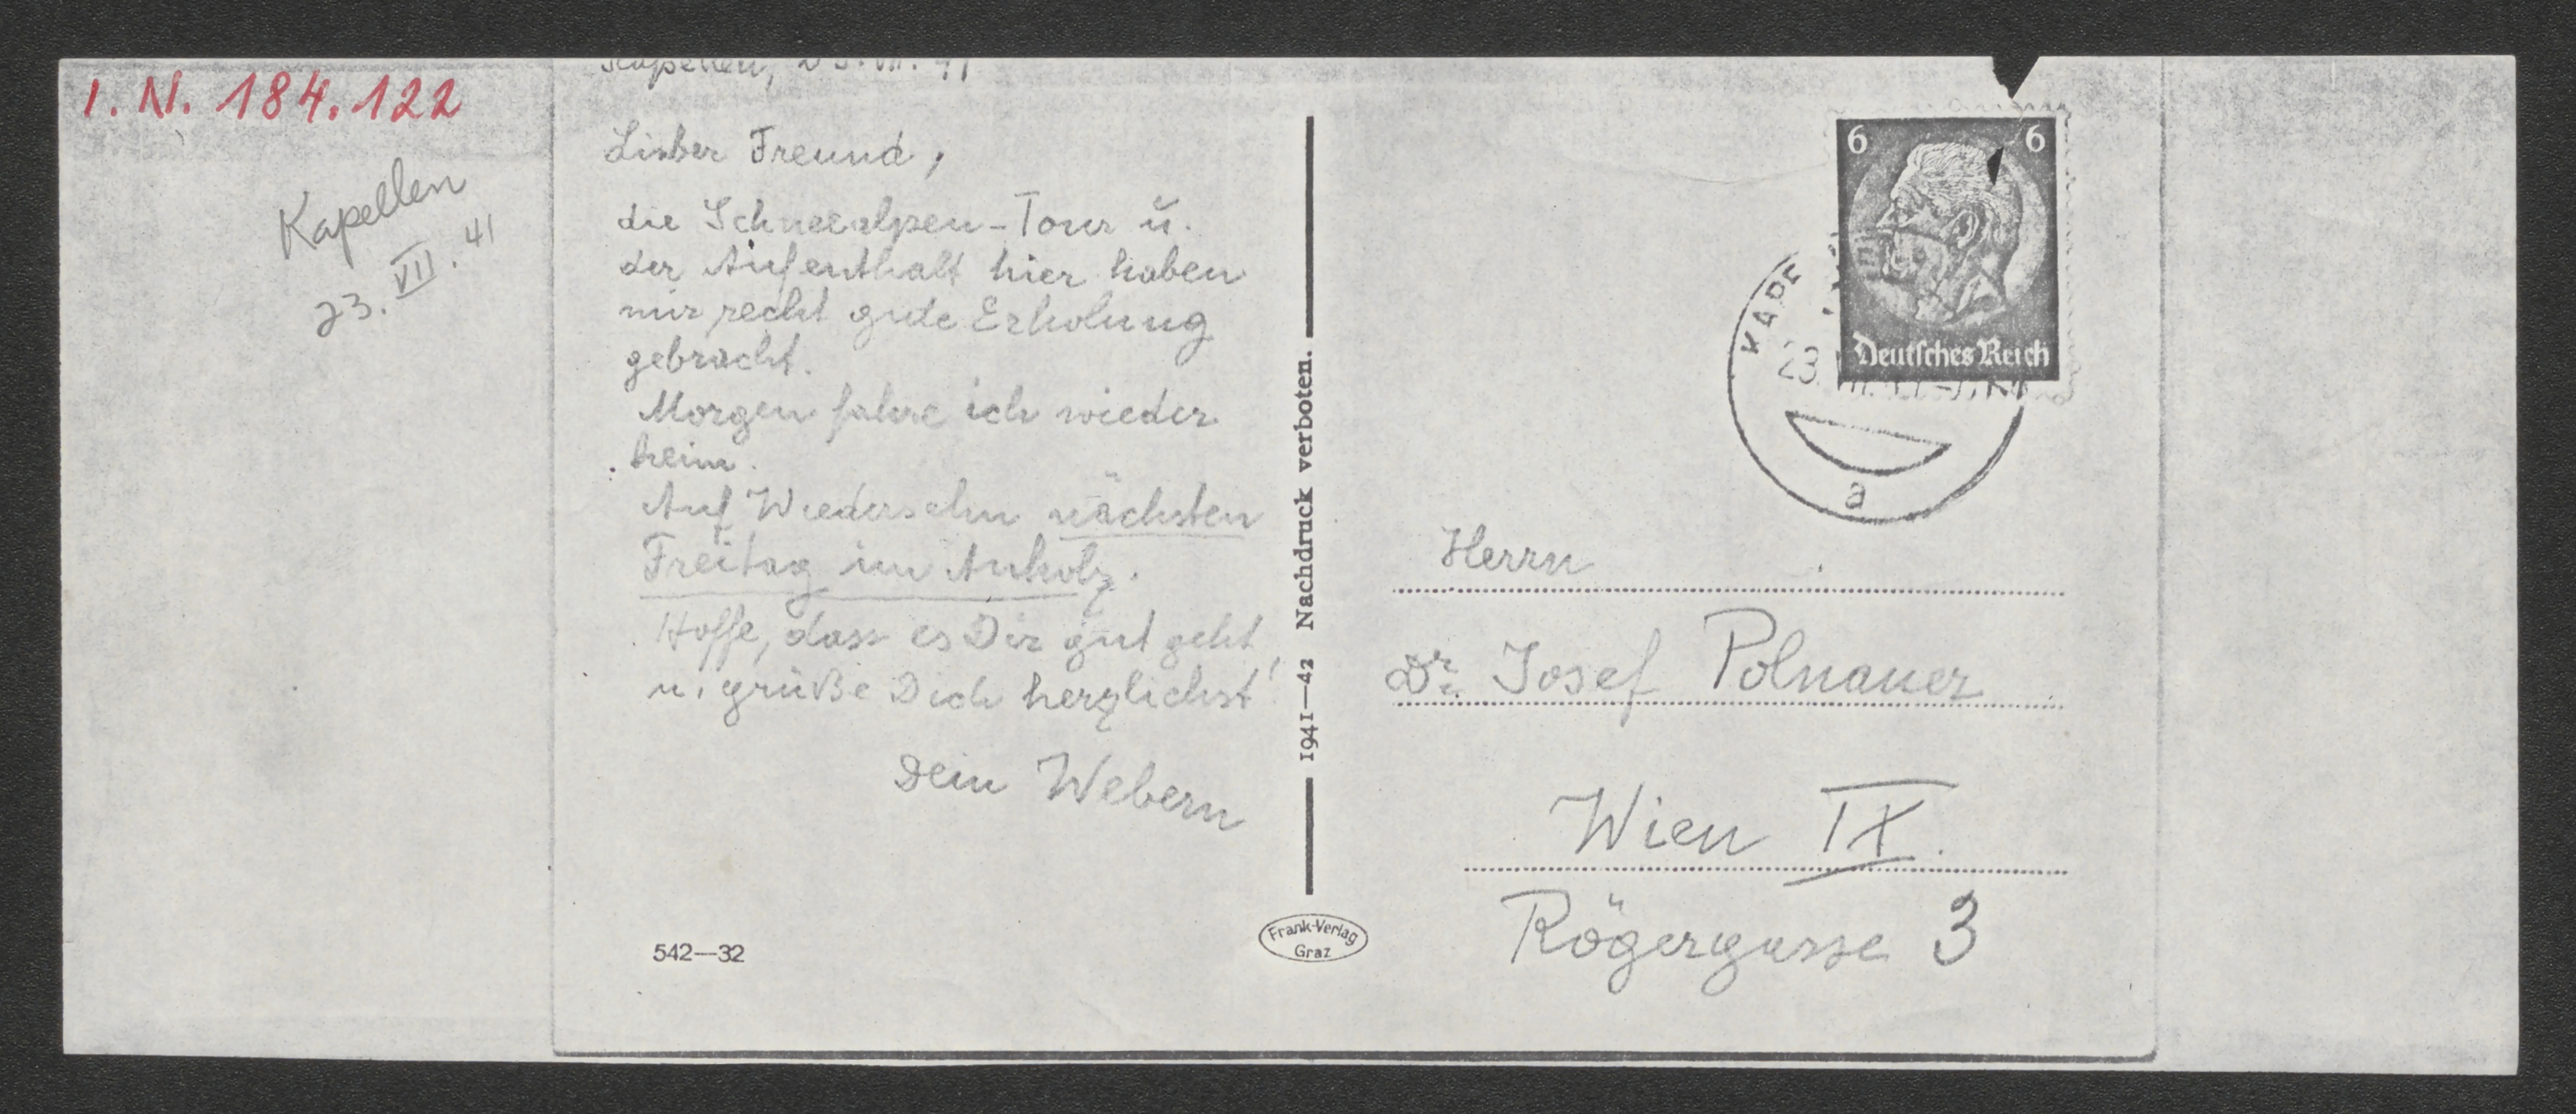 I. N. 184.122
Kapellen
23. VII. 41
Kapellen, 23. VII. 41
Lieber Freund,
die Schneealpen-Tour u.
der Aufenthalt hier haben
mir recht gute Erholung
gebracht.
Morgen fahre ich wieder
heim.
Auf Wiedersehn nächsten
Freitag im
Hoffe, dass es Dir gut geht
u. grüße Dich herzlichst!
Dein Webern
542—32
1941—42 Nachdruck verboten.
Frank-Verlag
Graz
6 6
Deutsches Reich
KAPE
23.
a
Herrn
Dr. Josef Polnauer
Wien IX.
Rögergasse 3